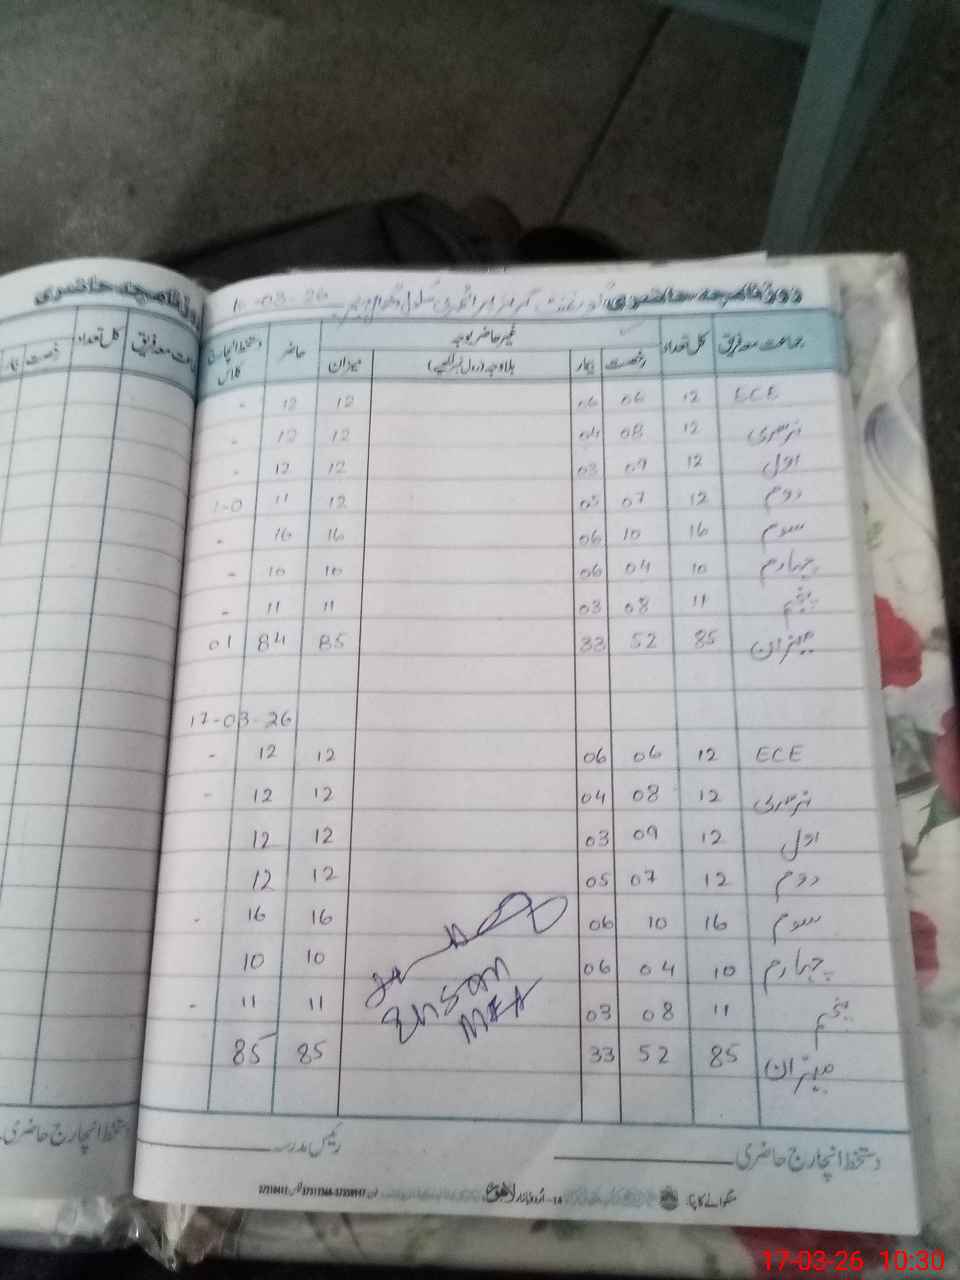 روزنامچہ حاضری
کل تعداد
رخصت
روزنامچہ حاضری گورنمنٹ گرلز پرائمری سکول 26-03-
جماعت معہ فریق کل تعداد غیر حاضر بوجہ حاضر دستخط انچارج کلاس
رخصت بیمار بلاوجہ (رول نمبر لکھیے) میزان
ECE 12 06 06 12 12 -
نرسری 12 08 04 12 12 -
اول 12 09 03 12 12 -
دوم 12 07 05 12 11 1-0
سوم 16 10 06 16 16 -
چہارم 10 04 06 10 10 -
پنجم 11 08 03 11 11 -
میزان 85 52 33 85 84 01
17-03-26
ECE 12 06 06 12 12 -
نرسری 12 08 04 12 12 -
اول 12 09 03 12 12
دوم 12 07 05 12 12
سوم 16 10 06 16 16 -
چہارم 10 04 06 10 10
پنجم 11 08 03 11 11 -
میزان 85 52 33 85 85
Ehsan
MEA
دستخط انچارج حاضری
رئیس مدرسہ
دستخط انچارج حاضری
منگوانے کا پتہ: 14-اردو بازار لاہور
17-03-26 10:30